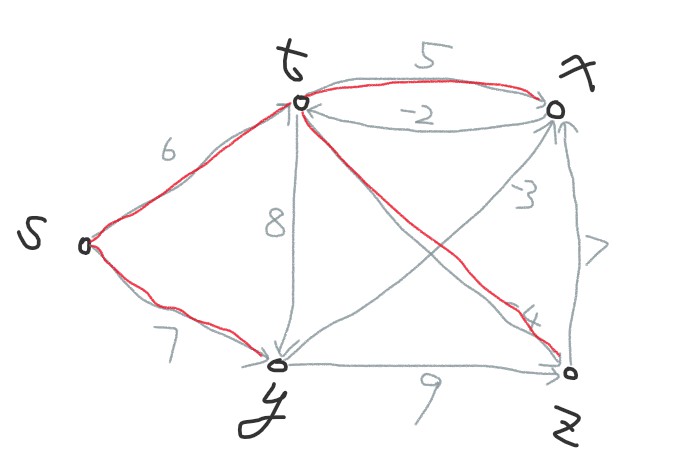 t
5
x
-2
6
-3
s
8
7
-4
7
9
y
z